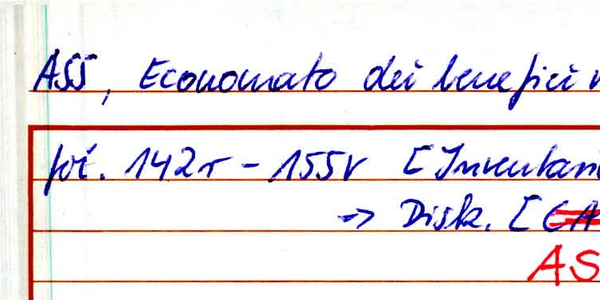 ASS, Economato dei benefici
fol. 142r - 155v [Inventari
→ Disk. [
AS